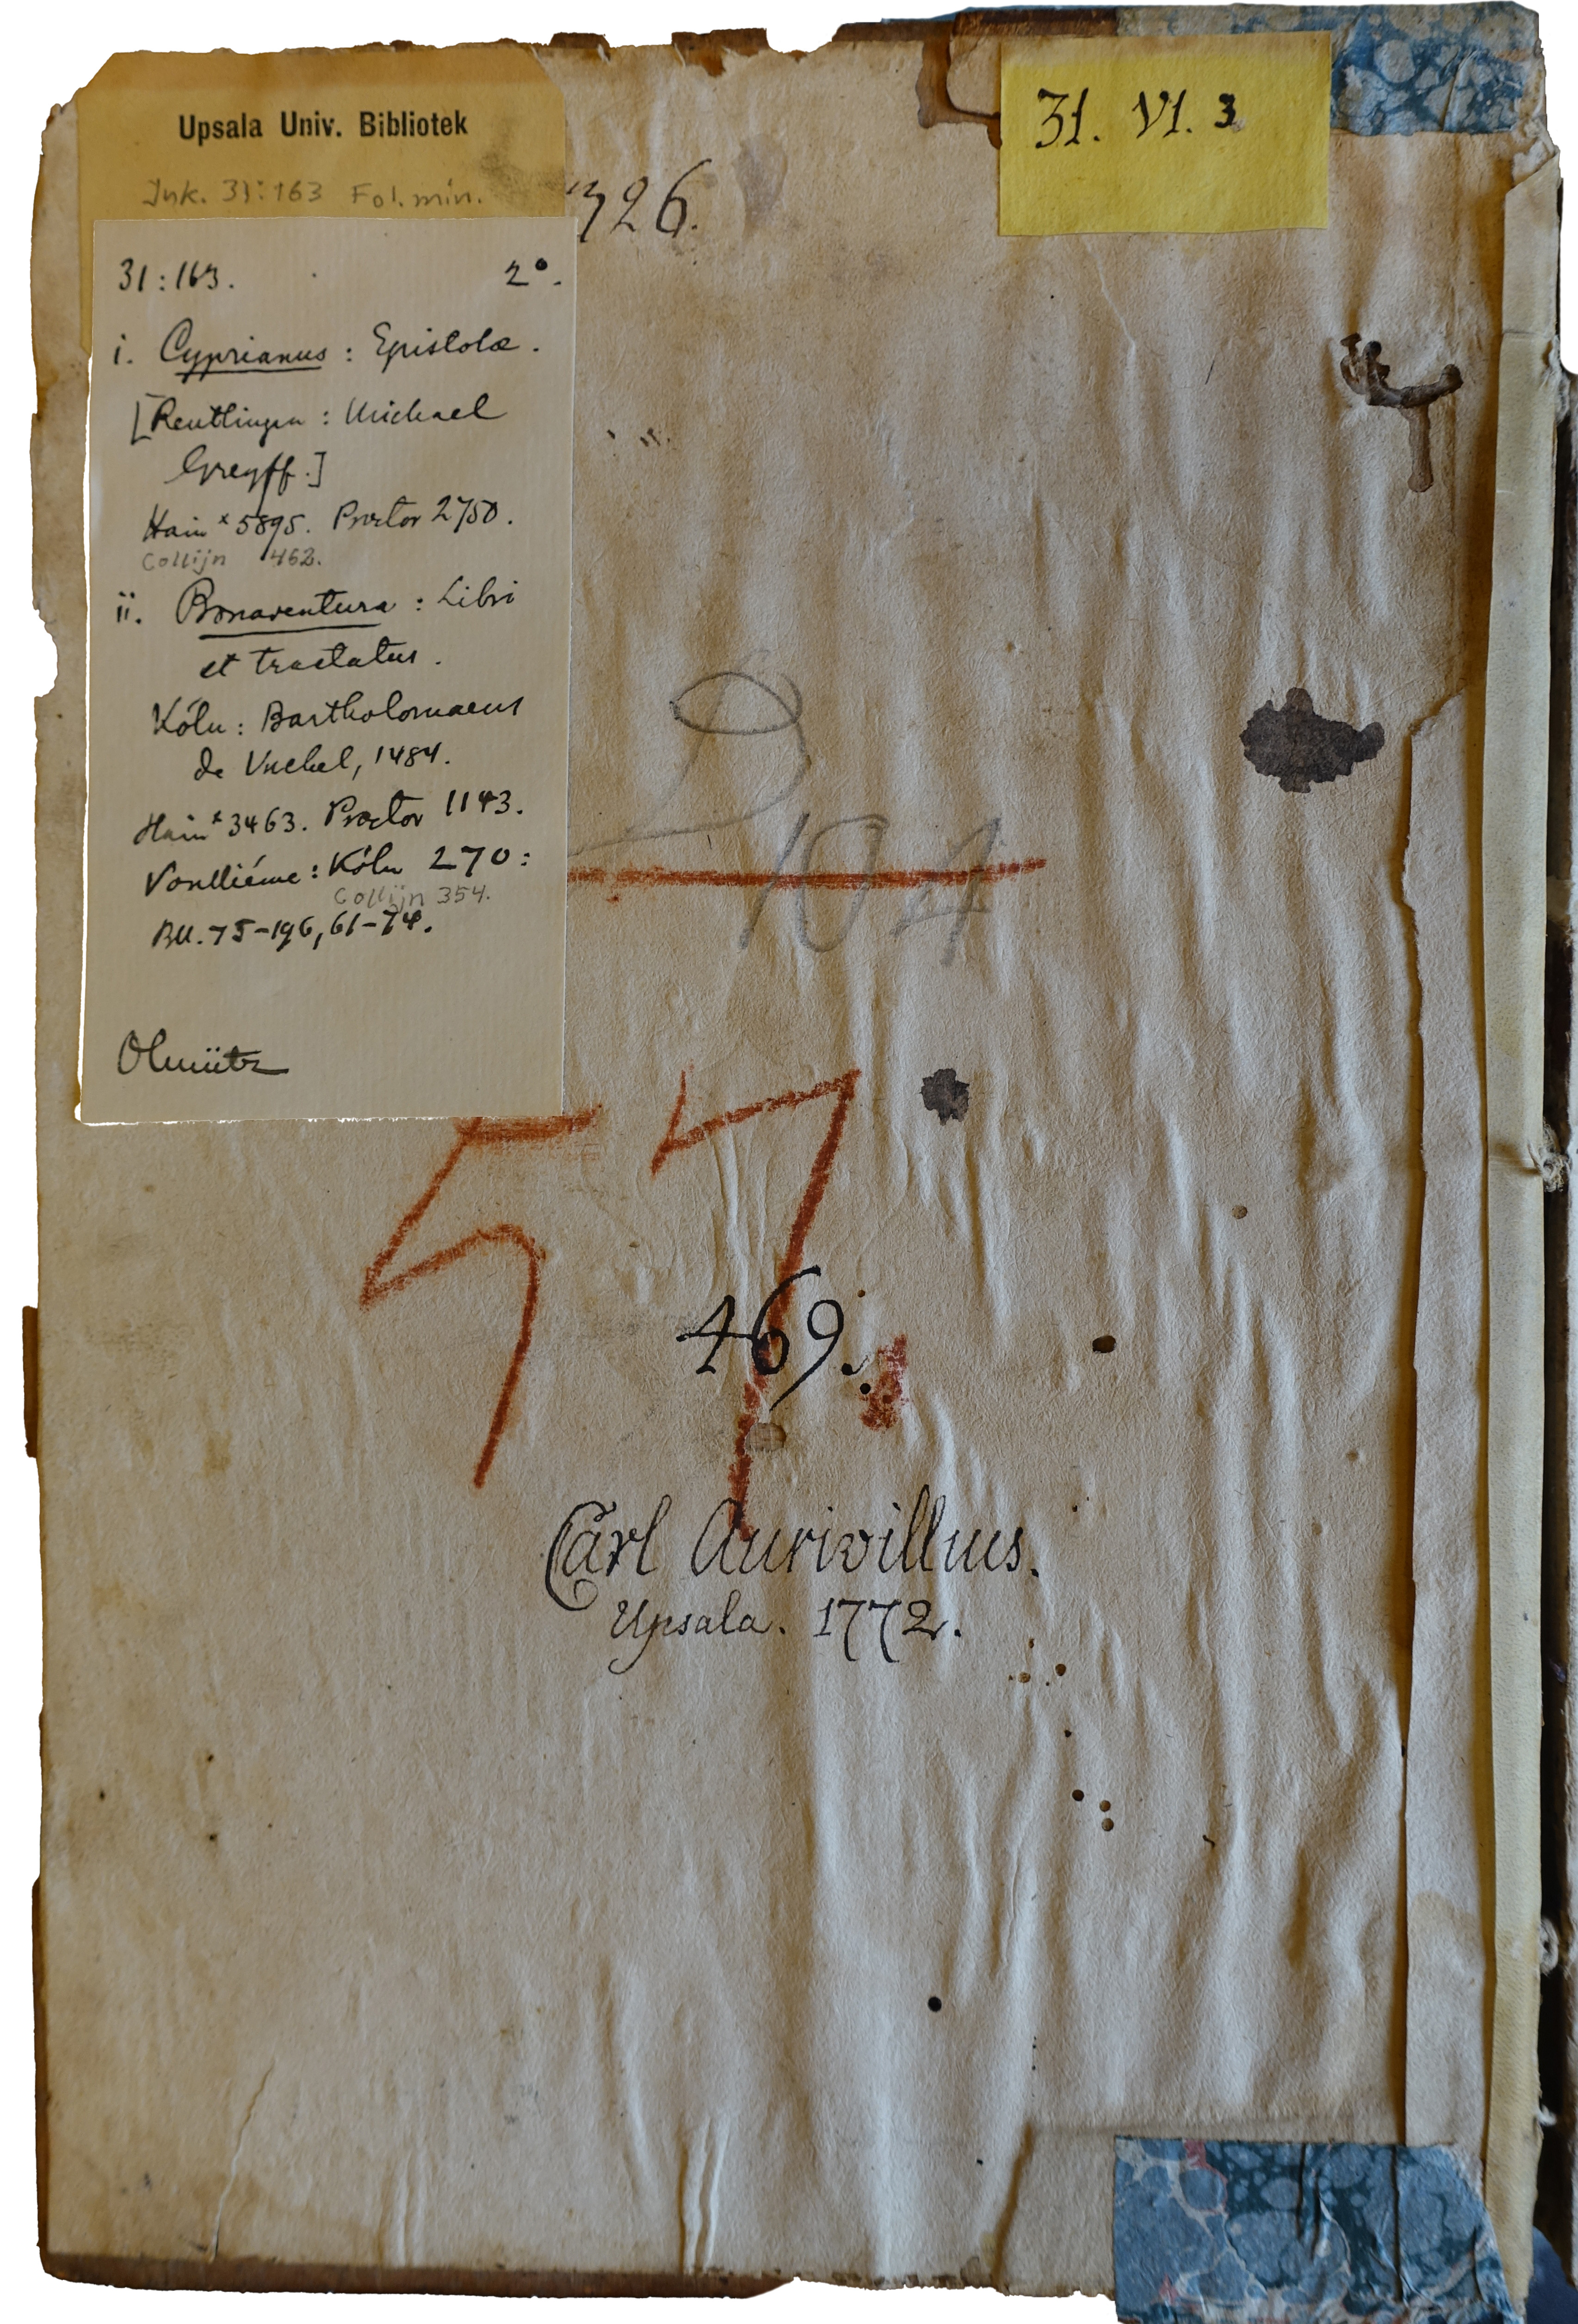 Upsala Univ. Bibliotek
Ink. 31:163 Fol. min.
31. VI. 3
726.
31:163. 2°.
i. Cyprianus: Epistolæ.
[Reutlingen: Michael
Greyff.]
Hain *5895. Proctor 2750.
Collijn 462.
ii. Bonaventura: Libri
et tractatus.
Köln: Bartholomaeus
de Unckel, 1484.
Hain *3463. Proctor 1143.
Voulliéme: Köln 270:
Collijn 354.
Bll. 75-196, 61-74.
Olmütz
104
57
469.
Carl Aurivillius.
Upsala. 1772.